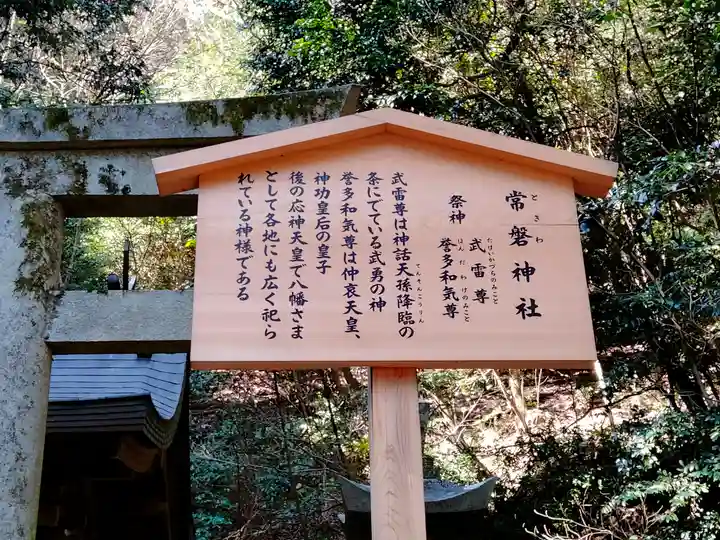 常磐神社
ときわ
祭神 武雷尊
たけいかづちのみこと
誉多和気尊
ほんだわけのみこと
武雷尊は神話天孫降臨の
てんそんこうりん
条にでている武勇の神
誉多和気尊は仲哀天皇、
神功皇后の皇子
後の応神天皇で八幡さま
として各地にも広く祀ら
れている神様である